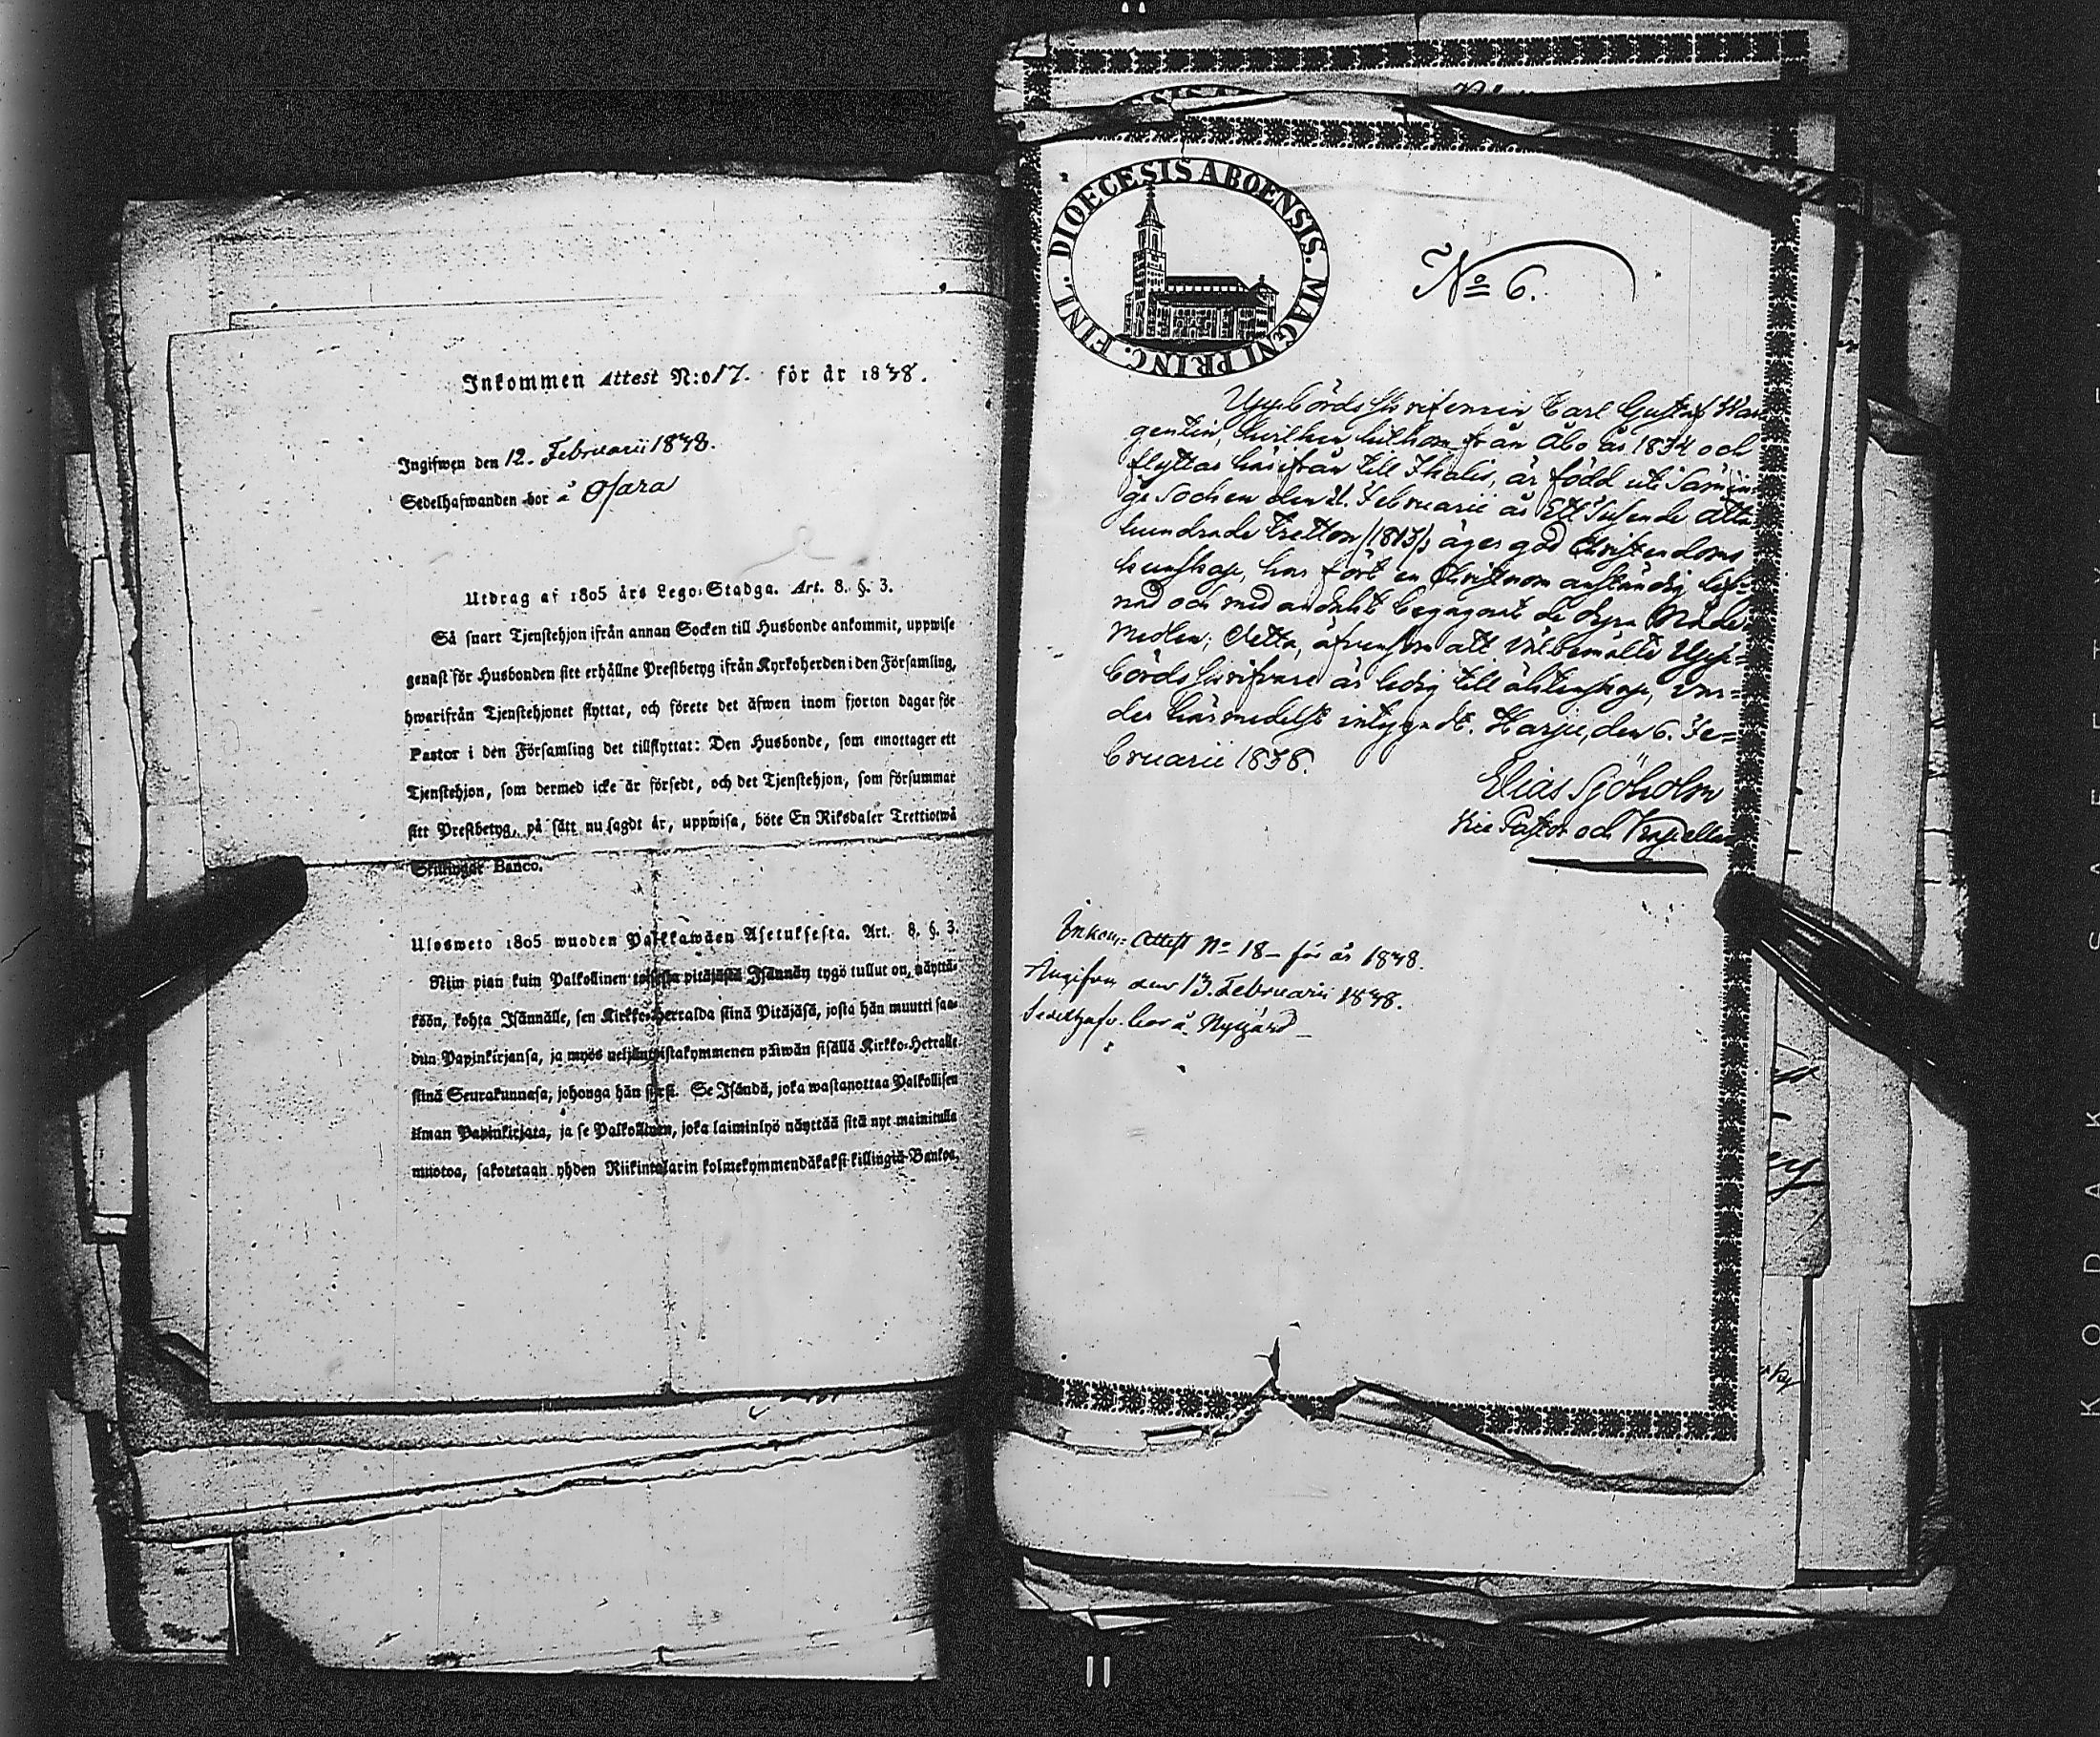 Inkommen Attest N:o 17. för år 1838.
Ingifwen den 12. Februarii 1838.
Sedelhafwanden bor å Osara
Utdrag af 1805 års Lego-Stadga. Art. 8. §. 3.
Så snart Tjenstehjon ifrån annan Socken till Husbonde ankommit, uppwise
genast för Husbonden sitt erhållne Prestbetyg ifrån Kyrkoherden i den Församling,
hwarifrån Tjenstehjonet flyttat, och förete det äfwen inom fjorton dagar för
Pastor i den Församling det tillflyttat: Den Husbonde, som emottager ett
Tjenstehjon, som dermed icke är försedt, och det Tjenstehjon, som försummar
sitt Prestbetyg, på sätt nu sagdt är, uppwisa, böte En Riksdaler Trettiotwå
Skillingar Banco.
Ulosweto 1805 wuoden Palkkawäen Asetuksesta. Art. 8. §. 3.
Niin pian kuin Palkollinen toisesta pitäjästä Isännän tygö tullut on, näyttä-
köön, kohta Isännälle, sen Kirkko-Herralda siinä Pitäjäsä, josta hän muutti saa-
dun Papinkirjansa, ja myös neljäntoistakymmenen päiwän sisällä Kirkko-Herralle
siinä Seurakunnasa, johonga hän siirsi. Se Isändä, joka wastanottaa Palkollisen
ilman Papinkirjata, ja se Palkollinen, joka laiminlyö näyttää sitä nyt mainitulla
muotoa, sakotetaan yhden Riikintalarin kolmekymmendäkaksi killingiä Bankoa.
DIOECESIS ABOENSIS. MAGNI PRINC. FINL.
No 6.
Uppbördsskrifvaren Carl Gustaf Wan
gentin, hvilken hitkom från Åbo år 1834 och
flyttar härifrån till Ikalis, är född uti Sämin-
ge Socken den 21. Februarii år Ett Tusende Åtta
hundrade tretton (1813), äger god Christendoms
kunskap, har fört en Christnom anständig lef-
nad och med andakt begagnat de dyra Nåde-
medlen; Detta, äfvensom att välbemälte Upp-
bördsskrifvare är ledig till äktenskap, var-
der härmedelst intygadt. Karju, den 6. Fe=
bruarii 1838.
Elias Sjöholm
Vice Pastor och Kapellan
Inkom: Attest No 18 för år 1838.
Ingifven den 13. Februarii 1838.
Sedelhafv. bor å Nygård
KODAK SAFETY